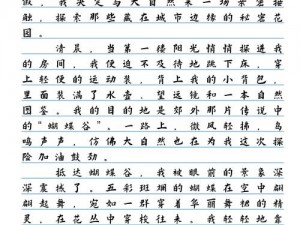 徽，我决定与大自然来一场亲密接
触，探索那些藏在城市边缘的秘密花
园。
清晨，当第一缕阳光悄悄探进我
的房间，我便迫不及待地跳下床，穿
上轻便的运动装，背上我的小背包，
里面装满了水壶、望远镜和一本自然
图鉴。我的目的地是郊外那片传说中
的“蝴蝶谷”。一路上，微风轻拂，鸟
鸣声声，仿佛大自然也在为我这次探
险加油鼓劲。
抵达蝴蝶谷，我被眼前的景象深
深震撼了。五彩斑斓的蝴蝶在空中翩
翩起舞，宛如一群穿着华丽舞裙的精
灵，在花丛中穿梭往来。我轻轻地靠